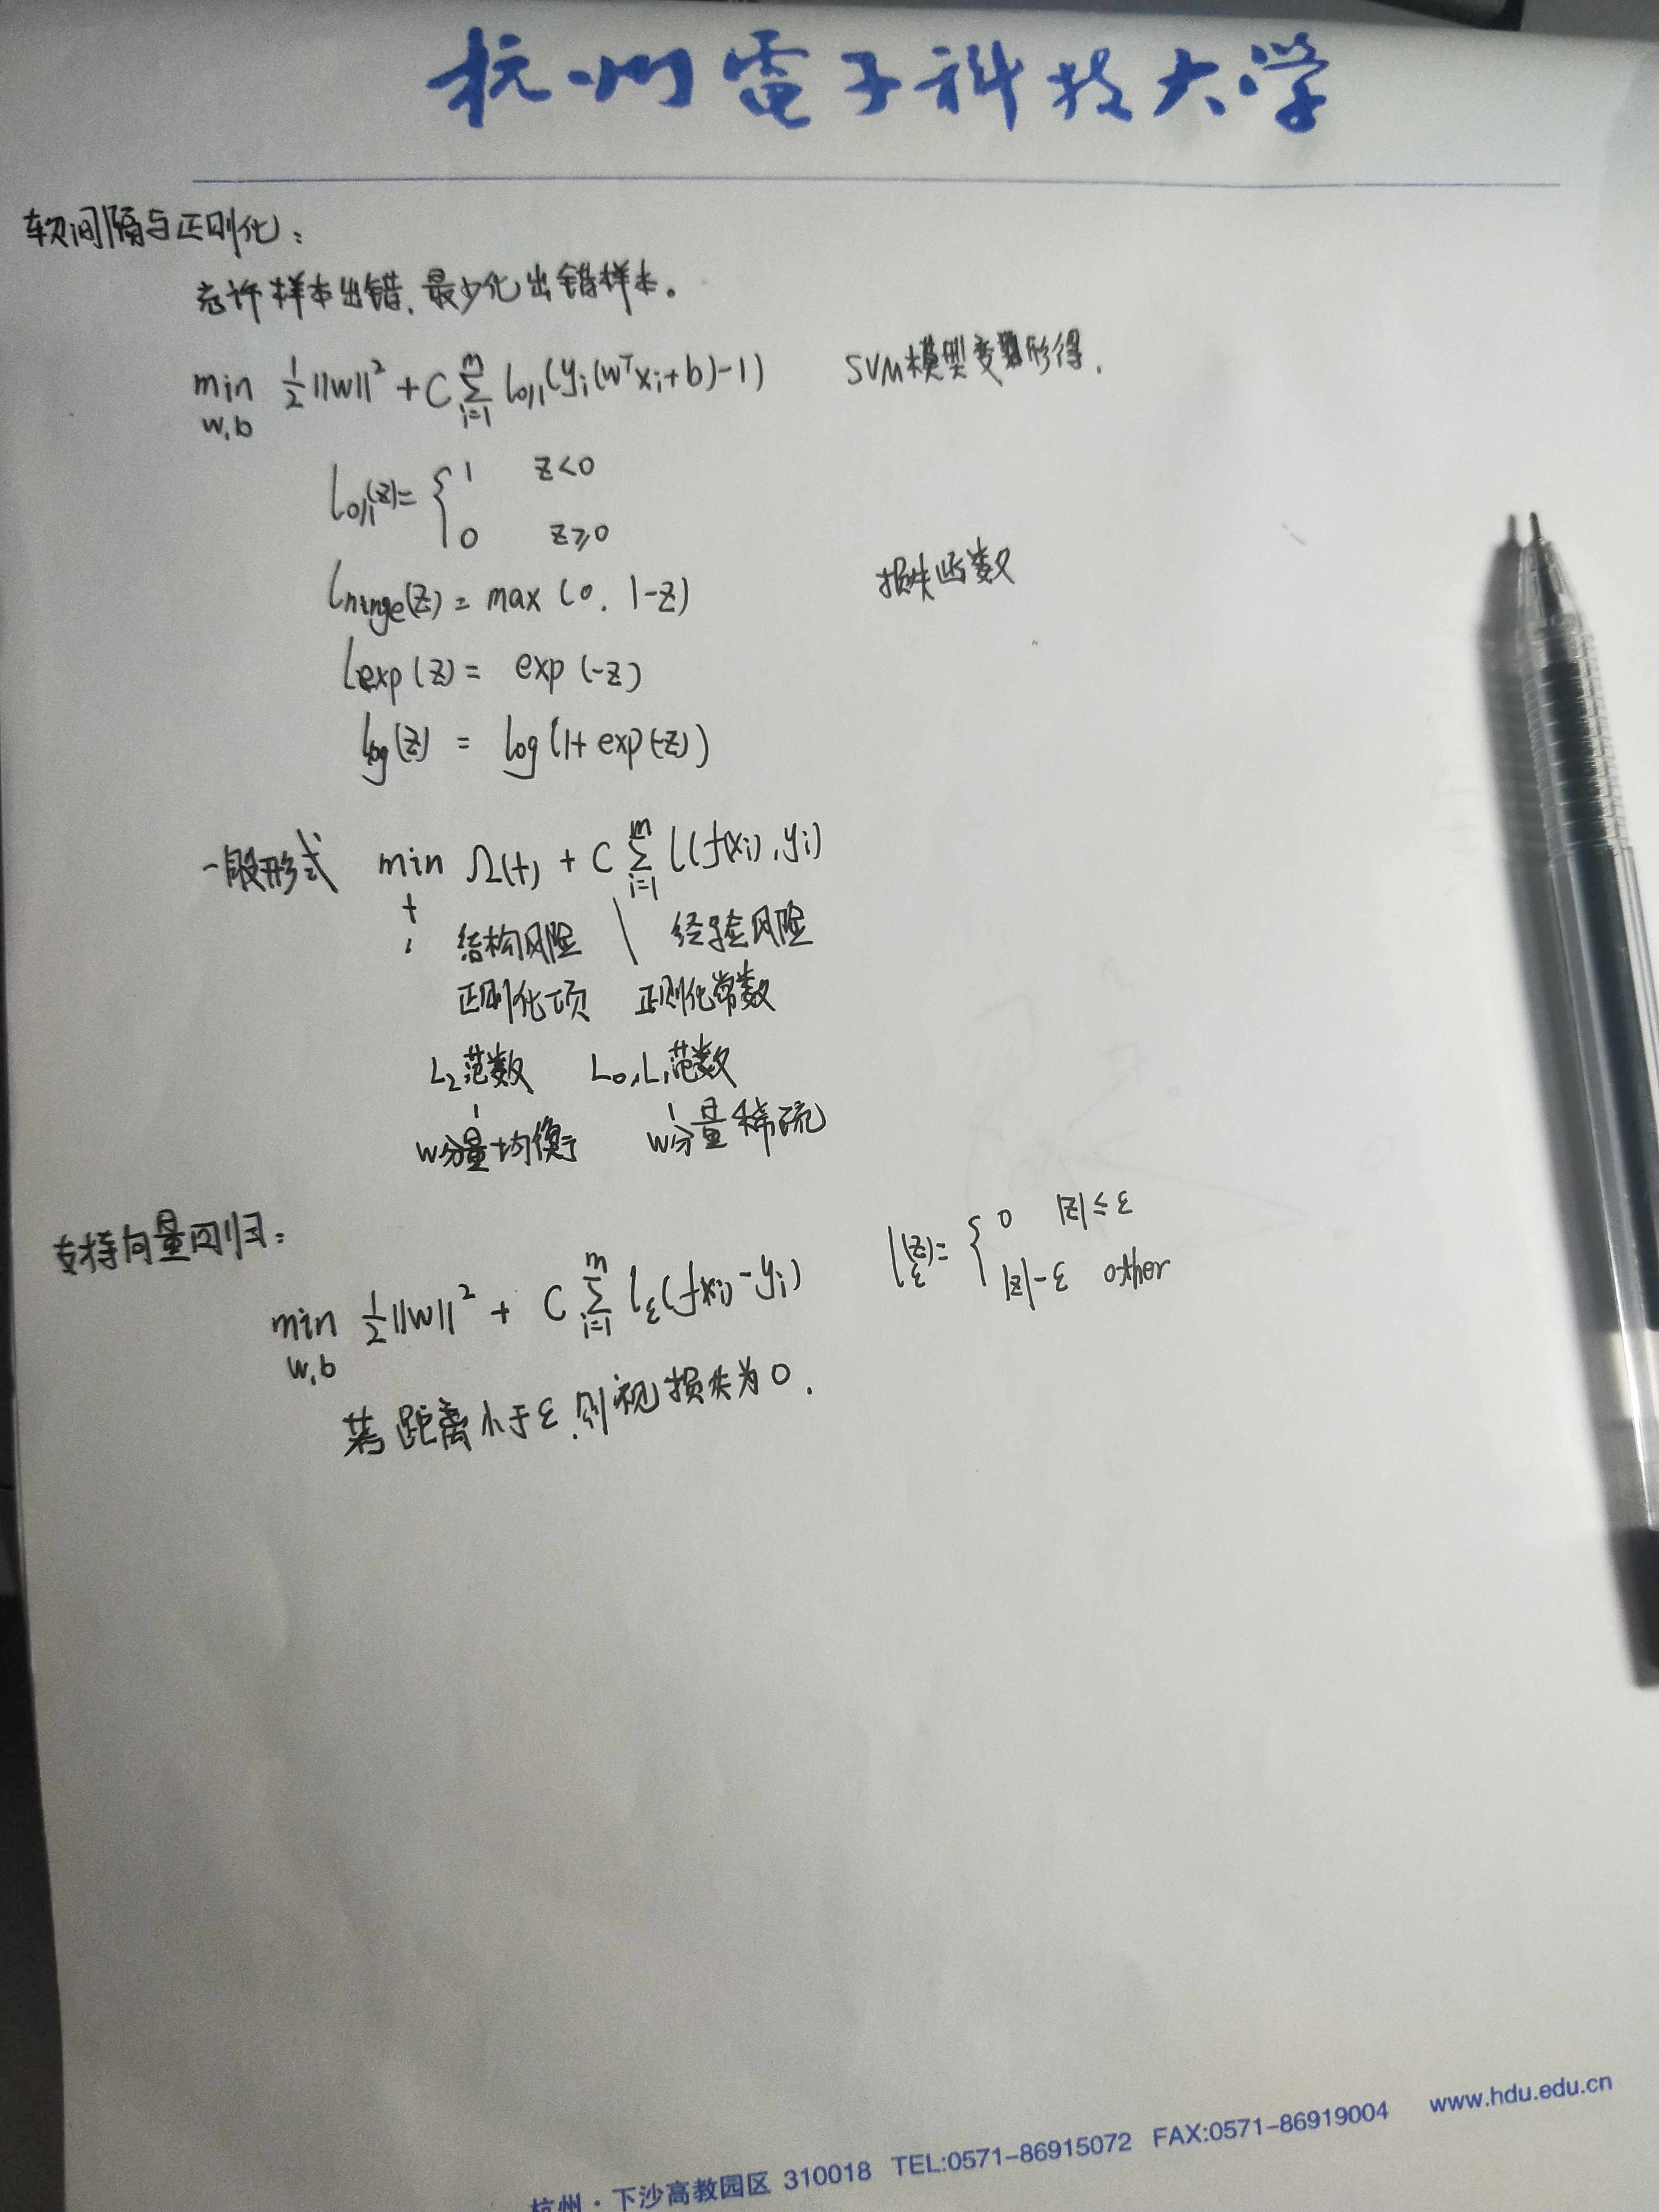 杭州電子科技大学
软间隔与正则化：
允许样本出错，最少化出错样本。
min w,b ½||w||² + C Σ_{i=1}^{m} l_{0/1}(y_i(w^T x_i+b)-1) SVM模型变形得.
l_{0/1}(z)= { 1 z<0
0 z≥0
l_{hinge}(z) = max(0, 1-z) 损失函数
l_{exp}(z) = exp(-z)
l_{log}(z) = log(1+exp(-z))
一般形式 min f Ω(f) + C Σ_{i=1}^{m} l(f(x_i), y_i)
结构风险 | 经验风险
正则化项 正则化常数
L₂范数 L₀,L₁范数
w分量均衡 w分量稀疏
支持向量回归：
min w,b ½||w||² + C Σ_{i=1}^{m} l_ε(f(x_i)-y_i) l_ε(z)= { 0 |z|≤ε
|z|-ε other
若距离小于ε,则视损失为0.
杭州·下沙高教园区 310018 TEL:0571-86915072 FAX:0571-86919004 www.hdu.edu.cn